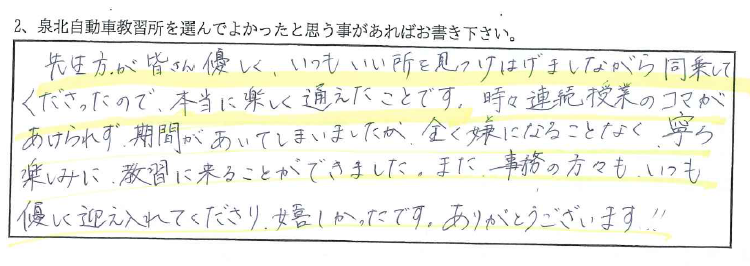 2、泉北自動車教習所を選んでよかったと思う事があればお書き下さい。
先生方が皆さん優しく、いつもいい所を見つけはげましながら同乗して
くださったので、本当に楽しく通えたことです。時々連続授業のコマが
あけられず、期間があいてしまいましたが、全く嫌になることなく、寧ろ
楽しみに、教習に来ることができました。また、事務の方々も、いつも
優しく迎え入れてくださり、嬉しかったです。ありがとうございます!!